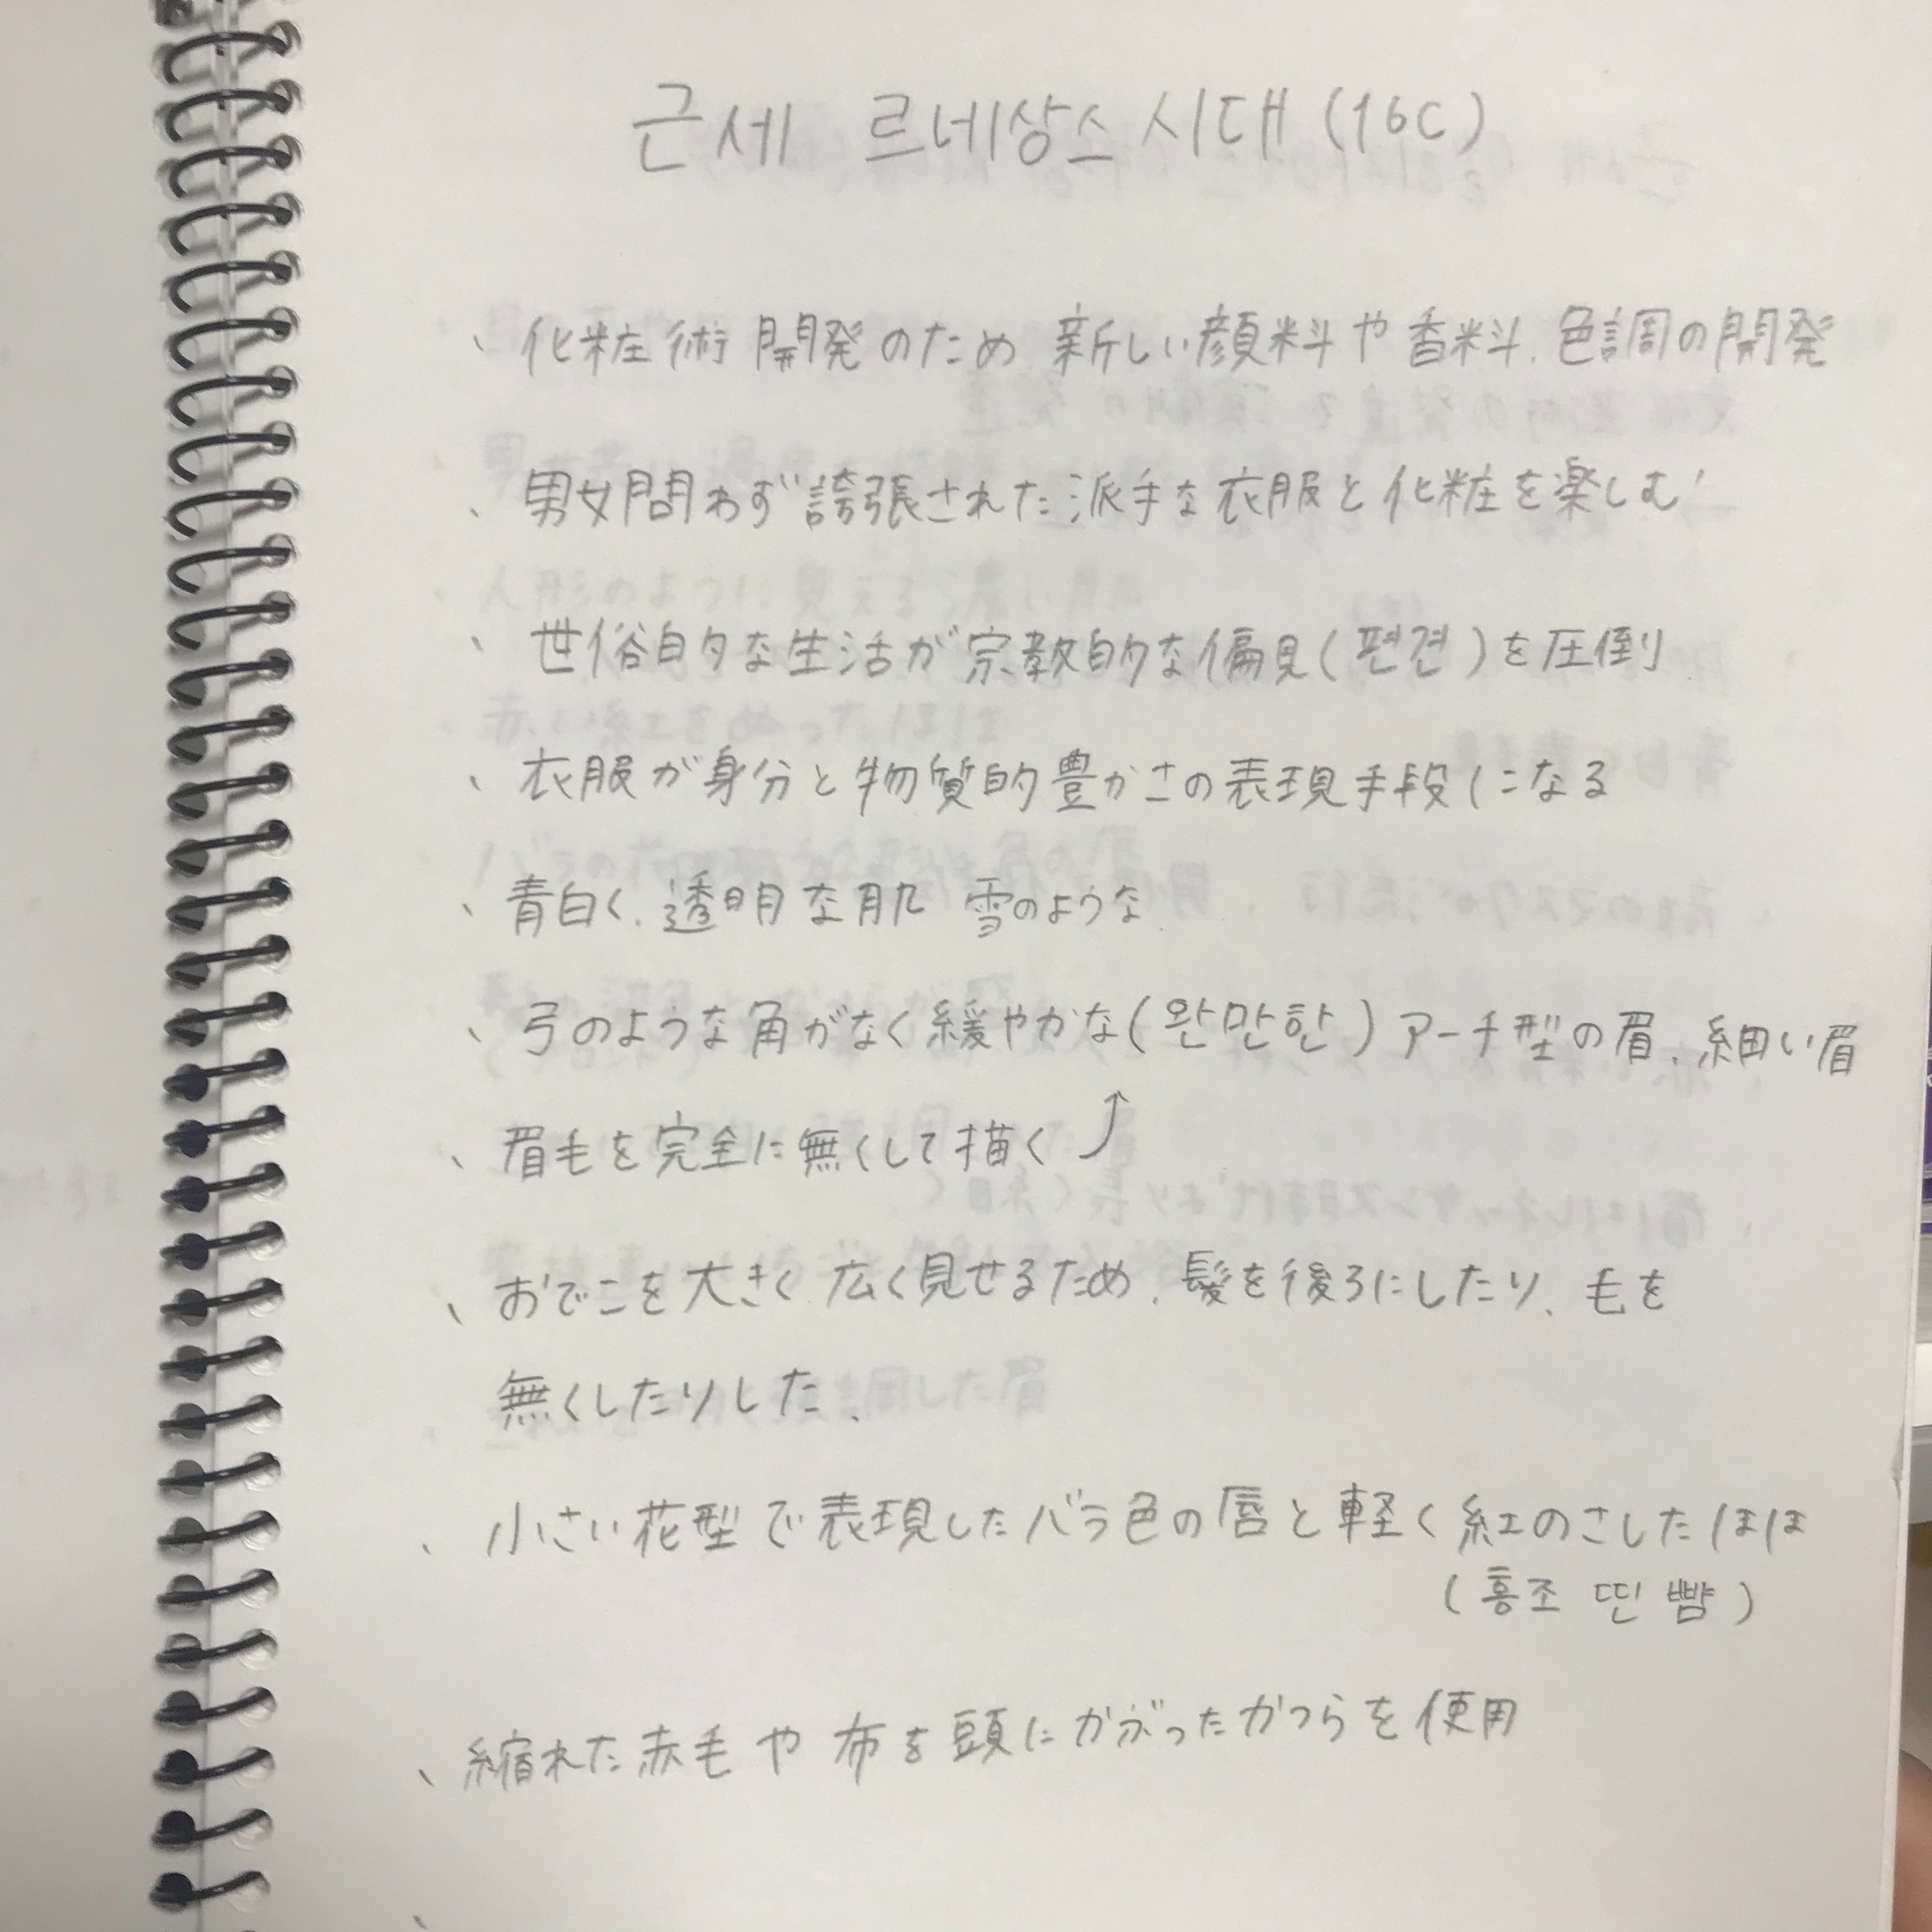 근세 르네상스 시대 (16C)
、化粧術 開発のため 新しい顔料や香料、色調の開発
、男女問わず誇張された派手な衣服と化粧を楽しむ
、世俗的な生活が宗教的な偏見(편견)を圧倒
、衣服が身分と物質的豊かさの表現手段になる
、青白く、透明な肌 雪のような
、弓のような角がなく緩やかな(완만한) アーチ型の眉、細い眉
、眉毛を完全に無くして描く ↑
、おでこを大きく 広く見せるため、髪を後ろにしたり、毛を
無くしたりした、
、小さい花型で表現したバラ色の唇と軽く紅のさしたほほ
(홍조 띤 뺨)
、縮れた赤毛や布を頭にかぶったかつらを使用